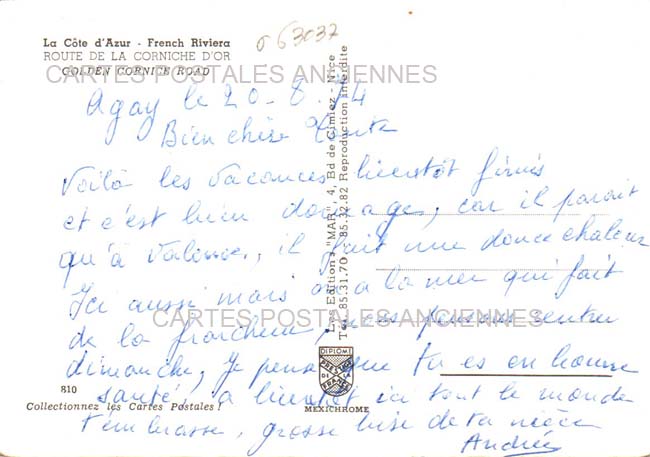 La Côte d'Azur - French Riviera
ROUTE DE LA CORNICHE D'OR
GOLDEN CORNICE ROAD
063037
CARTES POSTALES ANCIENNES
Agay le 20-8-74
Bien chère Tante
Voilà les vacances bientôt finis
et c'est bien dommage, car il parait
qu'à Valence, il fait une douce chaleur
Ici aussi mais on a la mer qui fait
de la fraicheur, nous pensons rentrer
CARTES POSTALES ANCIENNES
dimanche, Je pense que tu es en bonne
santé, a bientôt ici tout le monde
t'embrasse, grosse bise de ta nièce
Andrée
810
Collectionnez les Cartes Postales !
Les Editions "MAR", 4, Bd de Cimiez - Nice
Tél. 85.31.70 - 85.32.82 Reproduction interdite
DIPLOME
PRESTIGE
DE LA
FRANCE
MEXICHROME